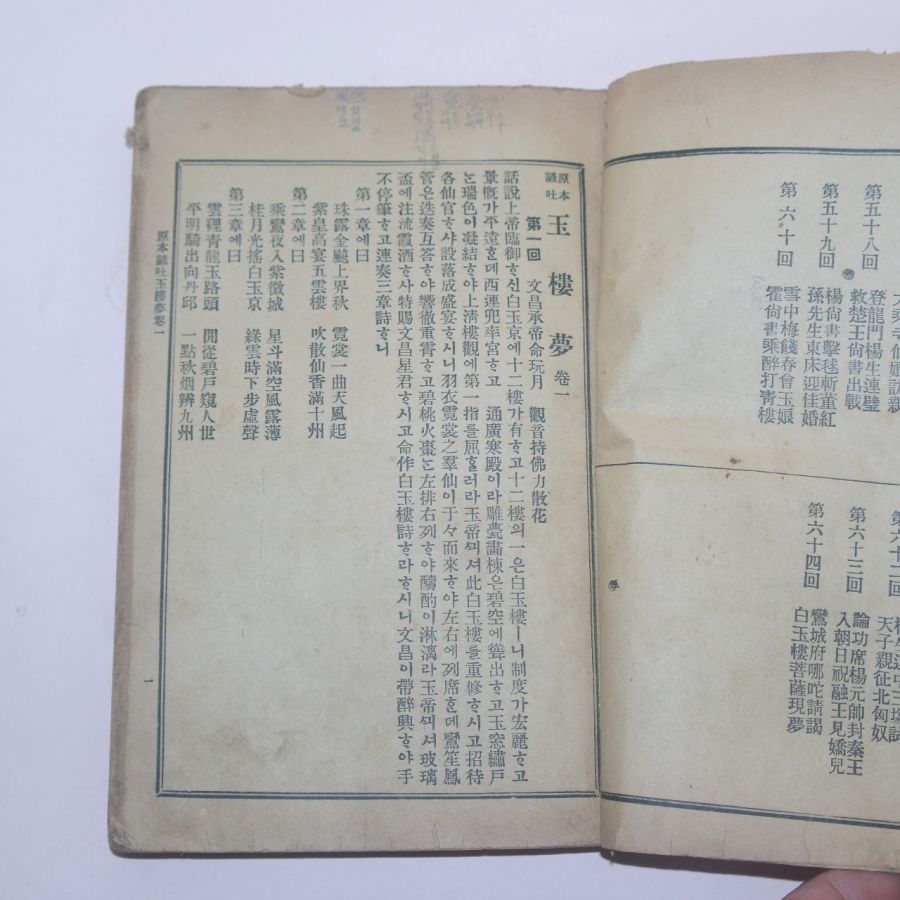 第五十八回
登龍門楊生連璧
救楚王尙書出戰
第五十九回
楊尙書擊毬斬董紅
孫先生東床迎佳婚
第六十回
雪中梅餞春會玉娘
霍尙書乘醉打靑樓
天子親征北匈奴
第六十三回
論功席楊元帥封秦王
入朝日祝融王見嬌兒
第六十四回
鸞城府哪咤請謁
白玉樓菩薩現夢
原本諺吐 玉樓夢 卷一
第一回 文昌承帝命玩月 觀音持佛力散花
話說上帝臨御ᄒᆞ신白玉京에十二樓가有ᄒᆞ고十二樓의一은白玉樓ㅣ니制度가宏麗ᄒᆞ고
景槪가平遠ᄒᆞᆫ데西連兜率宮ᄒᆞ고 通廣寒殿이라雕甍畫棟은碧空에聳出ᄒᆞ고玉窓繡戶
ᄂᆞᆫ瑞色이凝結ᄒᆞ야上淸樓觀에第一指를屈ᄒᆞᆯ러라玉帝ᄭᅴ셔此白玉樓를重修ᄒᆞ시고招待
各仙官ᄒᆞ샤設落成盛宴ᄒᆞ시니羽衣霓裳之羣仙이于々而來ᄒᆞ야左右에列席ᄒᆞᆫ데鸞笙鳳
管은迭奏互答ᄒᆞ야響徹重霄ᄒᆞ고碧桃火棗ᄂᆞᆫ左排右列ᄒᆞ야醻酌이淋漓라玉帝ᄭᅴ셔玻璃
盃에注流霞酒ᄒᆞ사特賜文昌星君ᄒᆞ시고命作白玉樓詩ᄒᆞ라ᄒᆞ시니文昌이帶醉興ᄒᆞ야手
不停筆ᄒᆞ고連奏三章詩ᄒᆞ니
第一章에曰
珠露金颷上界秋 霓裳一曲天風起
紫皇高宴五雲樓 吹散仙香滿十州
第二章에曰
乘鸞夜入紫微城 星斗滿空風露薄
桂月光搖白玉京 綠雲時下步虛聲
第三章에曰
雲裡靑龍玉路頭 開從碧戶窺人世
平明騎出向丹邱 一點秋烟辨九州
原本諺吐玉樓夢卷一
一